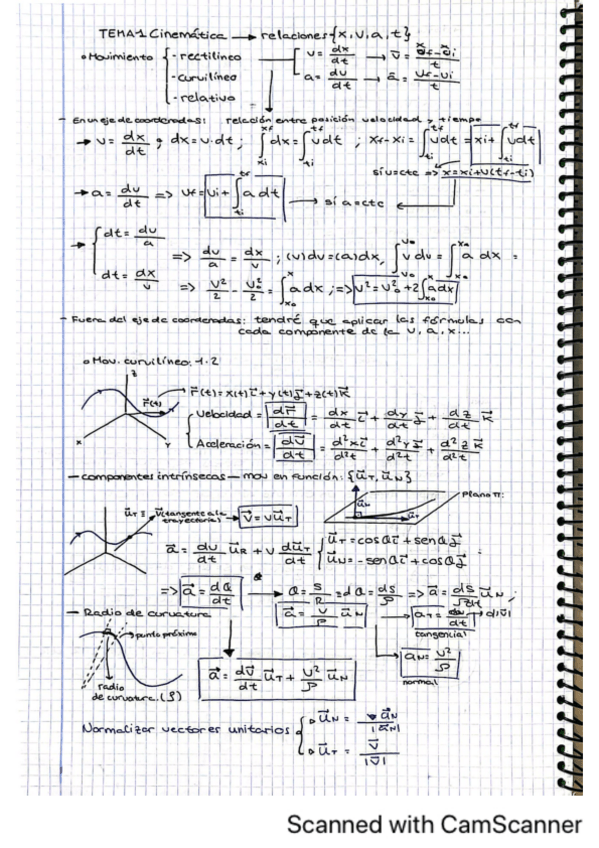 TEMA 1 Cinemática → relaciones {x, v, a, t}
• Movimiento { - rectilíneo
- curvilíneo
- relativo
v = dx/dt → v̄ = x̄f - x̄i / t
a = dv/dt → ā = vf - vi / t
- En un eje de coordenadas: relación entre posición velocidad y tiempo
→ v = dx/dt ; dx = v·dt ; ∫xi^xf dx = ∫ti^tf v dt ; xf - xi = ∫ti^tf v dt = xi + ∫ti^tf v dt
si v=cte => x = xi + v(tf - ti)
→ a = dv/dt => vf = vi + ∫ti^tf a dt → si a=cte
→ { dt = dv/a
dt = dx/v
=> dv/a = dx/v ; (v)dv = (a)dx, ∫ v dv = ∫ a dx =
=> v²/2 - v₀²/2 = ∫x₀^x a dx ; => v² = v₀² + 2∫x₀^x a dx
- Fuera del eje de coordenadas: tendré que aplicar las fórmulas con
cada componente de la v, a, x...
• Mov. curvilíneo: 1.2
z
r⃗(t)
x
y
→ r⃗(t) = x(t)i⃗ + y(t)j⃗ + z(t)k⃗
Velocidad = dr⃗/dt = dx/dt i⃗ + dy/dt j⃗ + dz/dt k⃗
Aceleración = dv⃗/dt = d²x i⃗/d²t + d²y j⃗/d²t + d²z k⃗/d²t
- componentes intrínsecas - mov en función: {u⃗T, u⃗N}
Plano π:
u⃗N
u⃗T
u⃗T ≡ V(tangente a la
trayectoria)
→ v⃗ = v u⃗T
a⃗ = dv/dt u⃗R + v du⃗T/dt { u⃗T = cosθ i⃗ + senθ j⃗
u⃗N = -senθ i⃗ + cosθ j⃗
=> a⃗ = dθ/dt → θ = s/R => dθ = ds/ρ => a⃗ = ds/ρdt u⃗N ;
a⃗ = v/ρ u⃗N → aT = dv/dt → d|v⃗|
tangencial
- Radio de curvatura
→ punto próximo
radio
de curvatura (ρ)
a⃗ = dv⃗/dt u⃗T + v²/ρ u⃗N
aN = v²/ρ
normal
Normalizar vectores unitarios { ▹ u⃗N = a⃗N/|a⃗N|
▹ u⃗T = v⃗/|v⃗|
Scanned with CamScanner